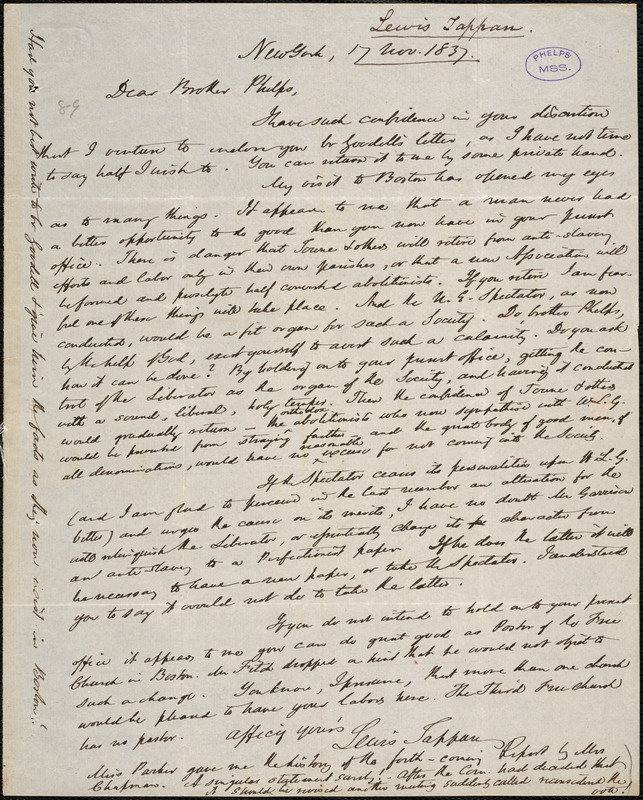 Lewis Tappan.
New York, 17 Nov. 1837.
PHELPS
MSS.
89
Dear Brother Phelps,
I have such confidence in your discretion
that I venture to inclose you br Goodell's letter, as I have not time
to say half I wish to. You can return it to me by some private hand.
My visit to Boston has opened my eyes
as to many things. It appears to me that a man never had
a better opportunity to do good than you now have in your present
office. There is danger that Towne & others will retire from anti-slavery
efforts and labor only in their own parishes, or that a new Association will
be formed and proselyte half converted abolitionists. If you retire I am fear-
ful one of these things will take place. And the N. E. Spectator, as now
conducted, would be a fit organ for such a Society. Do brother Phelps,
by the help of God, exert yourself to avert such a calamity. Do you ask
how it can be done? By holding on to your present office, getting the con-
trol of the Liberator as the organ of the Society, and having it conducted
with a sound, liberal, holy temper. Then the confidence of Towne & others
would gradually return — the orthodox abolitionists who now sympathise with W.L.G.
would be prevented from straying farther and the great body of good men, of
all denominations, would have no reasonable excuse for not coming into the Society.
If the Spectator ceases its personalities upon W. L. G.
(and I am glad to perceive in the last number an alteration for the
better) and urges the cause on its merits, I have no doubt Mr Garrison
will relinquish the Liberator, or essentially change its character from
an anti-slavery to a Perfectionist paper. If he does the latter it will
be necessary to have a new paper, or take the Spectator. I understood
you to say it would not do to take the latter.
If you do not intend to hold on to your present
office it appears to me you can do great good as Pastor of the Free
Church in Boston. Mr Fitch dropped a hint that he would not object to
such a change. You know, I presume, that more than one church
would be pleased to have your labors here. The Third Free church
has no pastor.
Affecty yours
Lewis Tappan
Miss Parker gave me the history of the forth-coming Report by Mrs
Chapman. A singular statement surely. After the Com. had decided that
it should be revised another meeting suddenly called reconsidered the
vote.
Had you not but write to br Goodell & give him the facts as they now exist in Boston?